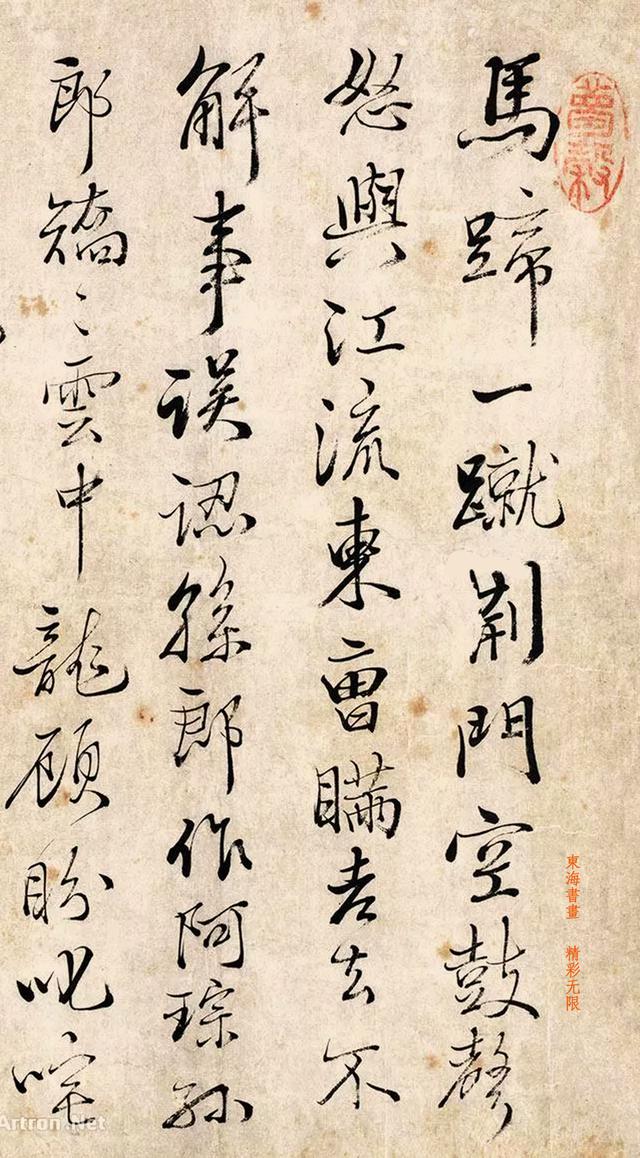 馬蹄一蹴荆門空鼓聲
怒與江流東曹瞞老去不
解事誤認孫郎作阿琮孫
郎矯〻雲中龍顧盼叱咤
東海書畫 精彩无限
Artron.Net